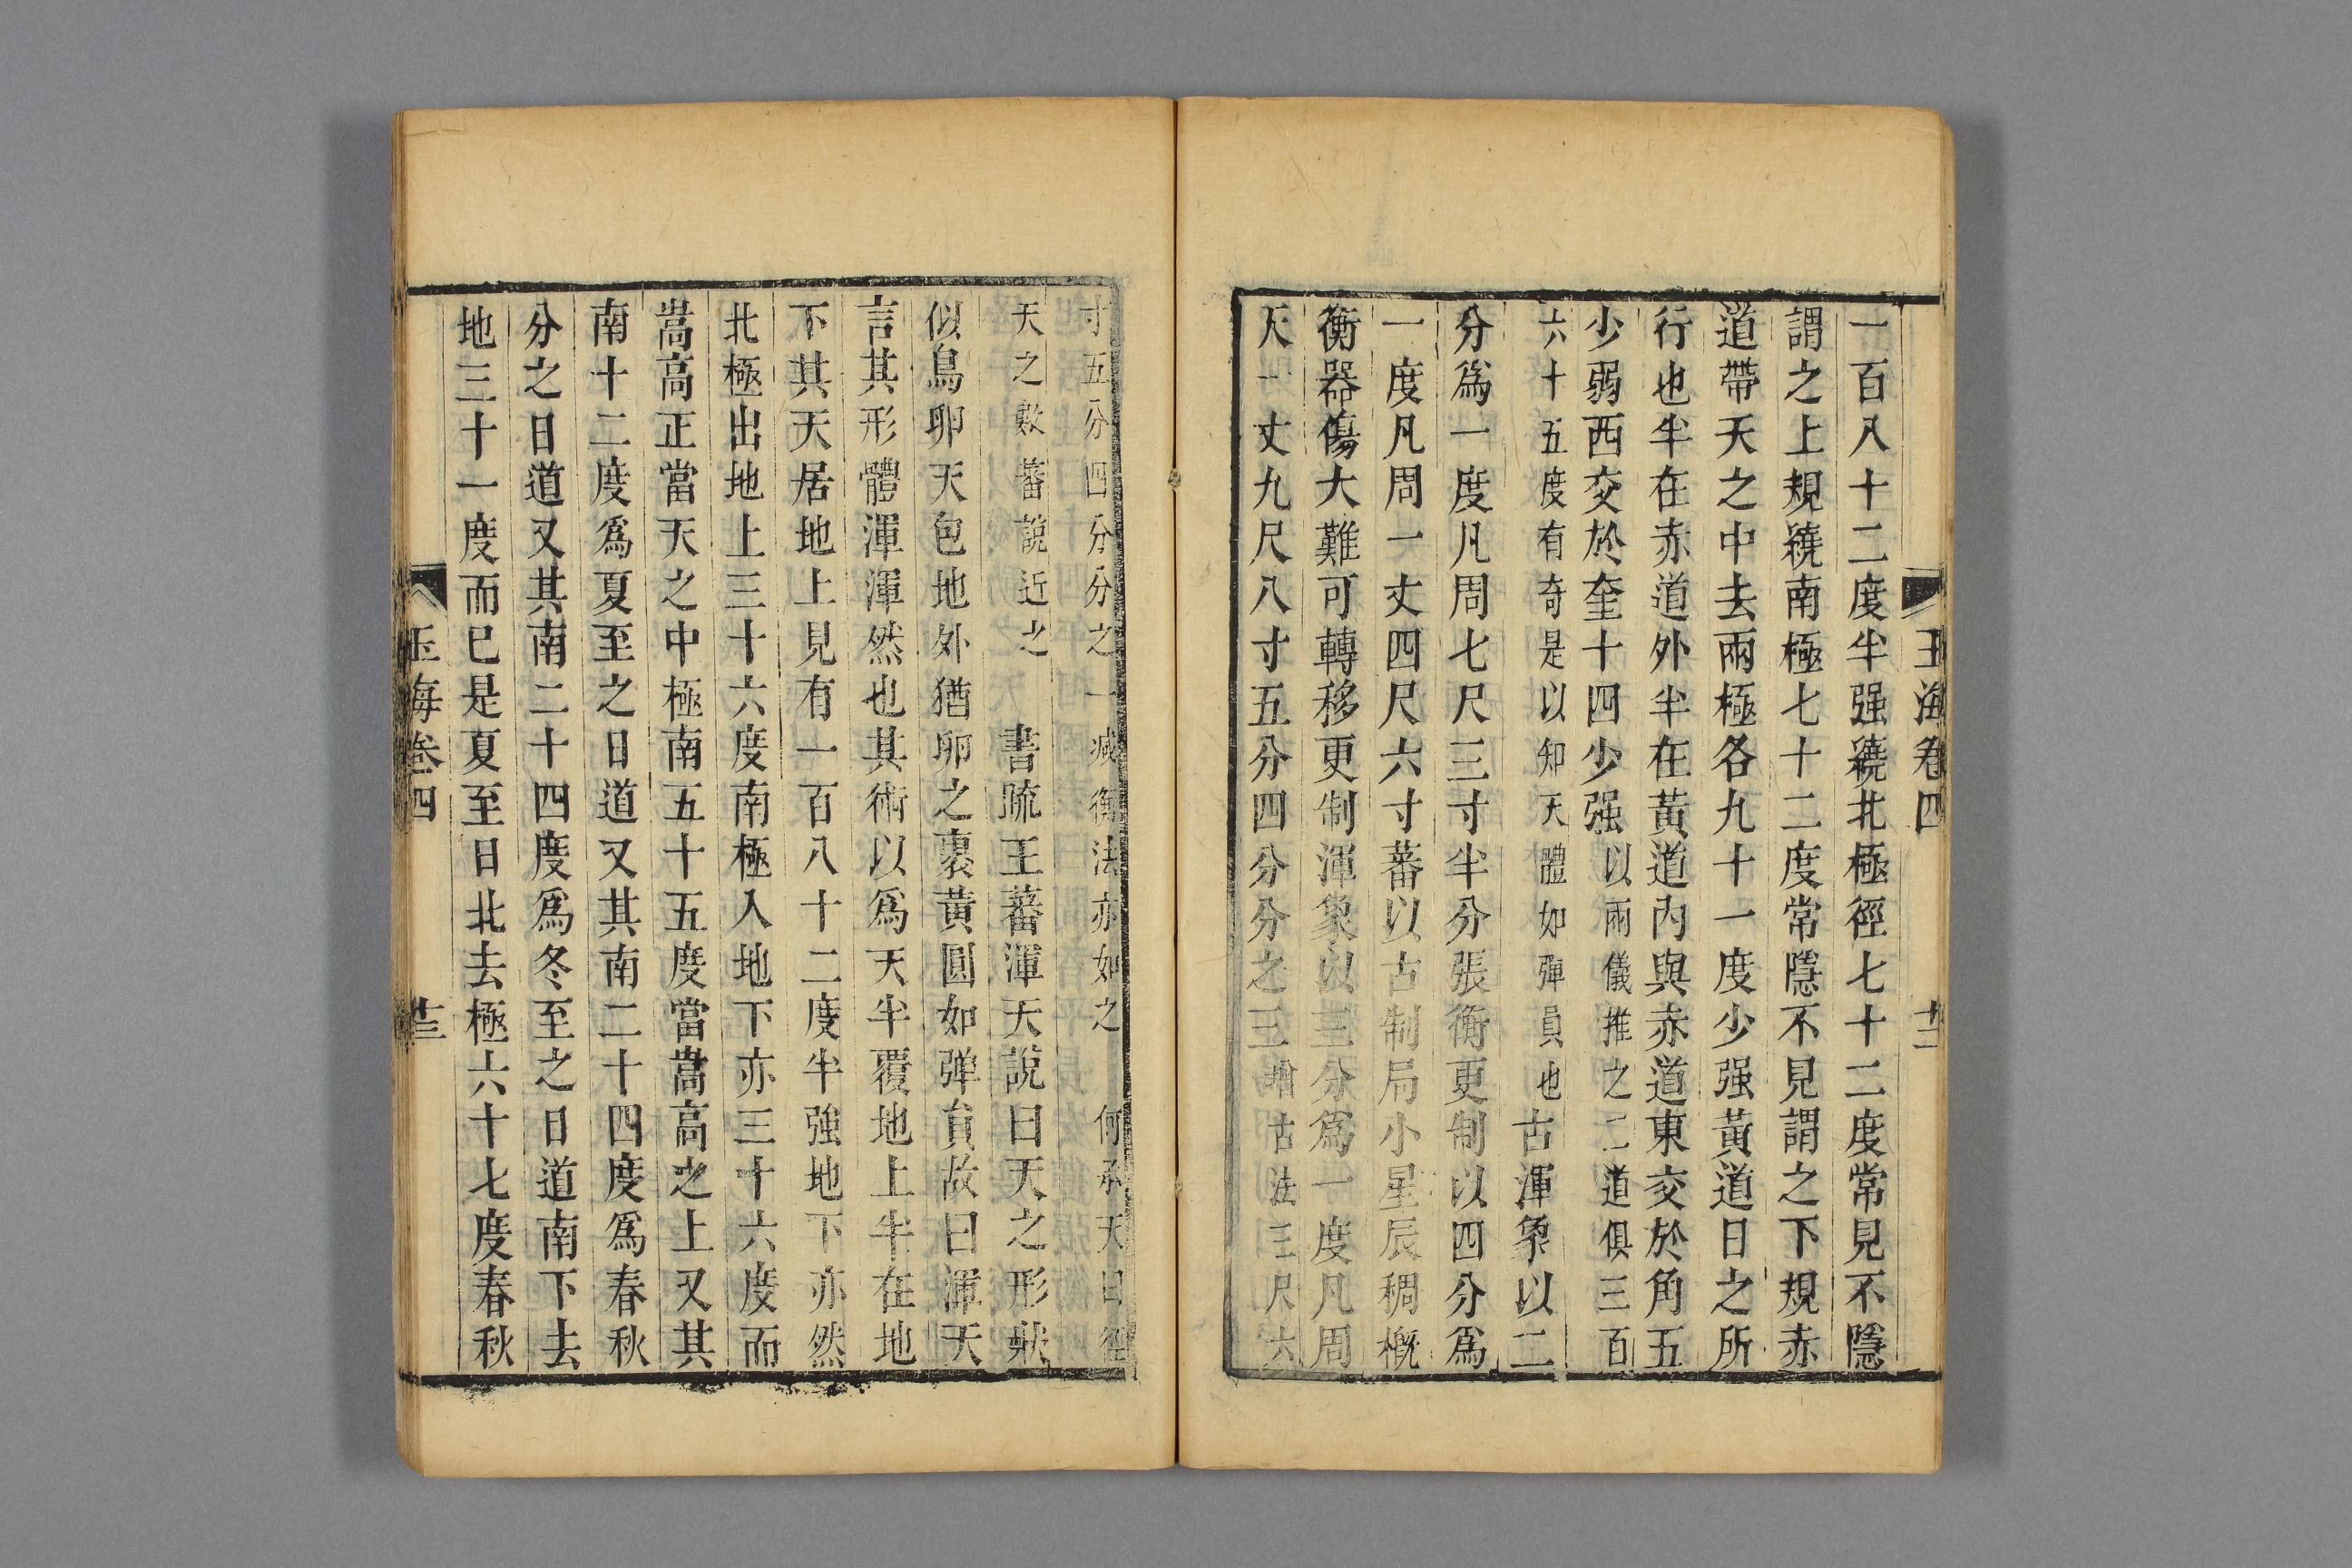 玉海卷四 十二
一百八十二度半强繞北極徑七十二度常見不隱
謂之上規繞南極七十二度常隱不見謂之下規赤
道帶天之中去兩極各九十一度少强黃道日之所
行也半在赤道外半在黃道內與赤道東交於角五
少弱西交於奎十四少强以兩儀推之二道俱三百
六十五度有奇是以知天體如彈員也古渾象以二
分爲一度凡周七尺三寸半分張衡更制以四分爲
一度凡周一丈四尺六寸蕃以古制局小星辰稠概
衡器傷大難可轉移更制渾象以三分爲一度凡周
天一丈九尺八寸五分四分分之三增古法三尺六
寸五分四分分之一减衡法亦如之 何承天曰徑
天之數蕃說近之 書疏王蕃渾天說曰天之形狀
似鳥卵天包地外猶卵之裹黃圓如弹貟故曰渾天
言其形體渾渾然也其術以爲天半覆地上半在地
下其天居地上見有一百八十二度半強地下亦然
北極出地上三十六度南極入地下亦三十六度而
嵩高正當天之中極南五十五度當嵩高之上又其
南十二度爲夏至之日道又其南二十四度爲春秋
分之日道又其南二十四度爲冬至之日道南下去
地三十一度而已是夏至日北去極六十七度春秋
玉海卷四 十三